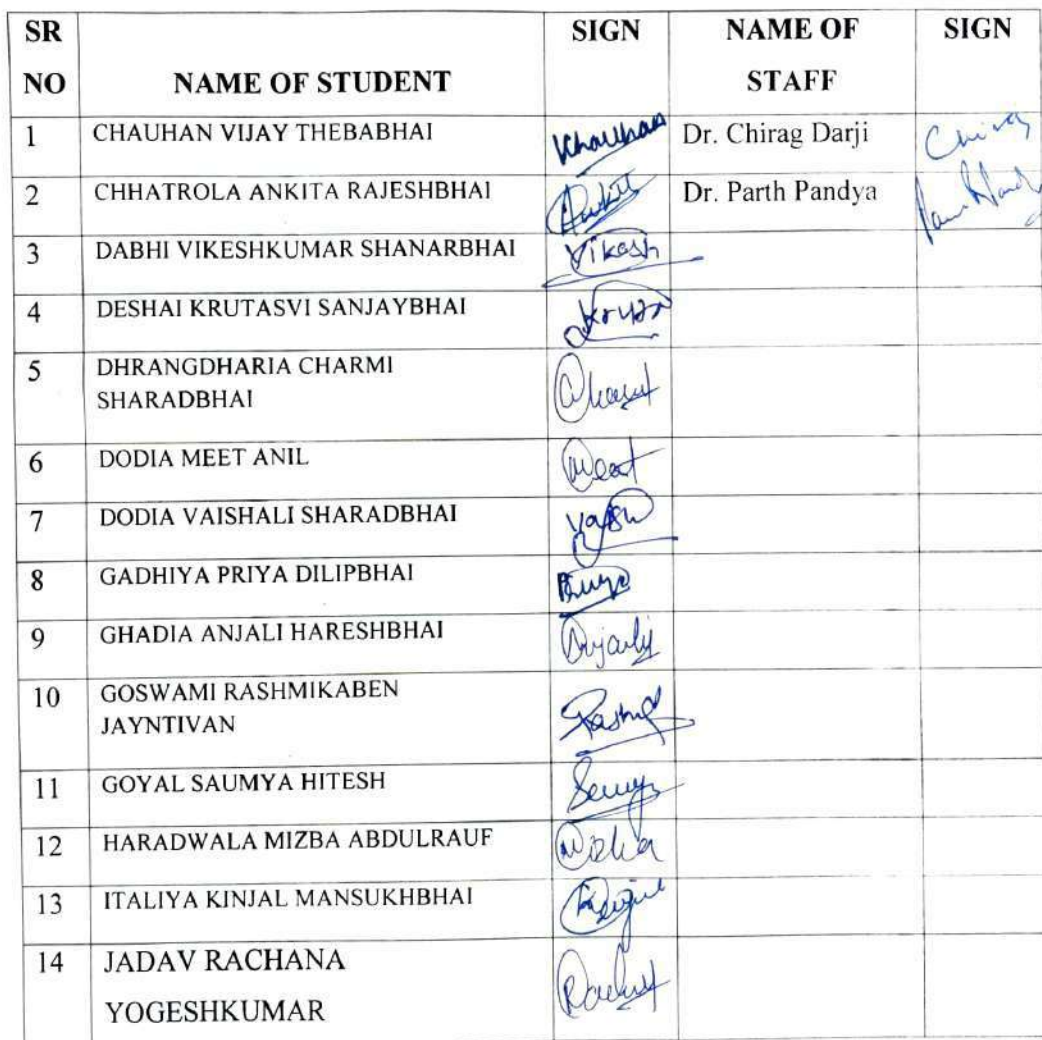 SR NO NAME OF STUDENT SIGN NAME OF STAFF SIGN
1 CHAUHAN VIJAY THEBABHAI Chauhan Dr. Chirag Darji Chirag
2 CHHATROLA ANKITA RAJESHBHAI Dr. Parth Pandya
3 DABHI VIKESHKUMAR SHANARBHAI Vikash
4 DESHAI KRUTASVI SANJAYBHAI
5 DHRANGDHARIA CHARMI
SHARADBHAI
6 DODIA MEET ANIL Meet
7 DODIA VAISHALI SHARADBHAI
8 GADHIYA PRIYA DILIPBHAI
9 GHADIA ANJALI HARESHBHAI Anjali
10 GOSWAMI RASHMIKABEN
JAYNTIVAN
11 GOYAL SAUMYA HITESH
12 HARADWALA MIZBA ABDULRAUF
13 ITALIYA KINJAL MANSUKHBHAI
14 JADAV RACHANA
YOGESHKUMAR